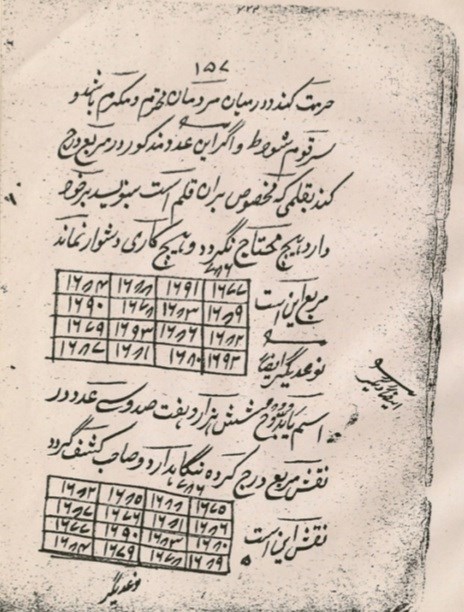 ۱۵۷
حرمت کنند و در میان مردمان محترم و مکرم باشد و
سر قوم شود ط و اگر این عدد مذکور در مربع درج
کند بقلمی که مخصوص بران قلم است بنویسد بر خود
دارد هیچ محتاج نگردد و هیچ کاری دشوار نماند
۷۸۶
مربع این است
۱۶۸۴ ۱۶۸۸ ۱۶۹۱ ۱۶۷۷
۱۶۹۰ ۱۶۷۸ ۱۶۸۳ ۱۶۸۹
۱۶۷۹ ۱۶۹۳ ۱۶۸۶ ۱۶۸۲
۱۶۸۷ ۱۶۸۱ ۱۶۸۰ ۱۶۹۲
نوعدیگر ایضا
اسم یا بدوح شش هزار و هفت صد و سی عدد در
نقش مربع درج کرده نگابدارد و صاحب کشف گردد
۷۸۶
نقش این است
۱۶۸۲ ۱۶۸۵ ۱۶۸۸ ۱۶۷۵
۱۶۸۷ ۱۶۷۶ ۱۶۸۱ ۱۶۸۶
۱۶۷۷ ۱۶۹۰ ۱۶۸۳ ۱۶۸۰
۱۶۸۴ ۱۶۷۹ ۱۶۷۸ ۱۶۸۹
نوعدیگر